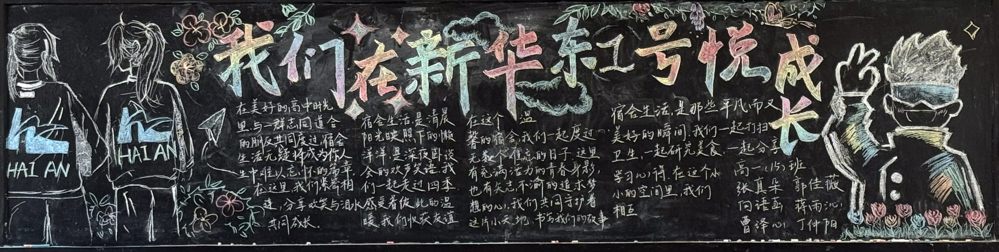 我们在新华东1号悦成长
HAI AN
HAI AN
在美好的高中时光
里与一群志同道合
的朋友共同度过宿舍
生活无疑将成为你人
生中难忘的篇章。
在这里，我们紧密相
连，分享欢笑与泪水
共同成长。
宿舍生活是清晨
阳光映照下的懒
洋洋，是深夜卧谈
会的欢声笑语，我
们一起走过四季，
感受着彼此的温
暖，我们收获友谊
在这个 温
馨的宿舍，我们一起度过
无数个难忘的日子，这里
有充满活力的青春身影，
也有矢志不渝的追求梦
想的心，我们共同守护着
这片小天地，书写我们的故事
宿舍生活，是那些平凡而又
美好的瞬间，我们一起打扫
卫生，一起研究美食，一起分享
学习心得，在这个小
小的空间里，我们
相互
高一（15）班
张真朵 郭佳薇
闫语菡 蒋雨沁
曹泽心 丁仲阳